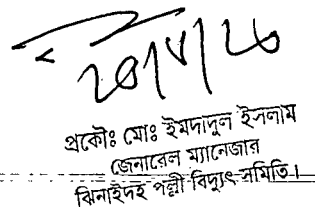 প্রকৌঃ মোঃ ইমদাদুল ইসলাম
জেনারেল ম্যানেজার
ঝিনাইদহ পল্লী বিদ্যুৎ সমিতি।